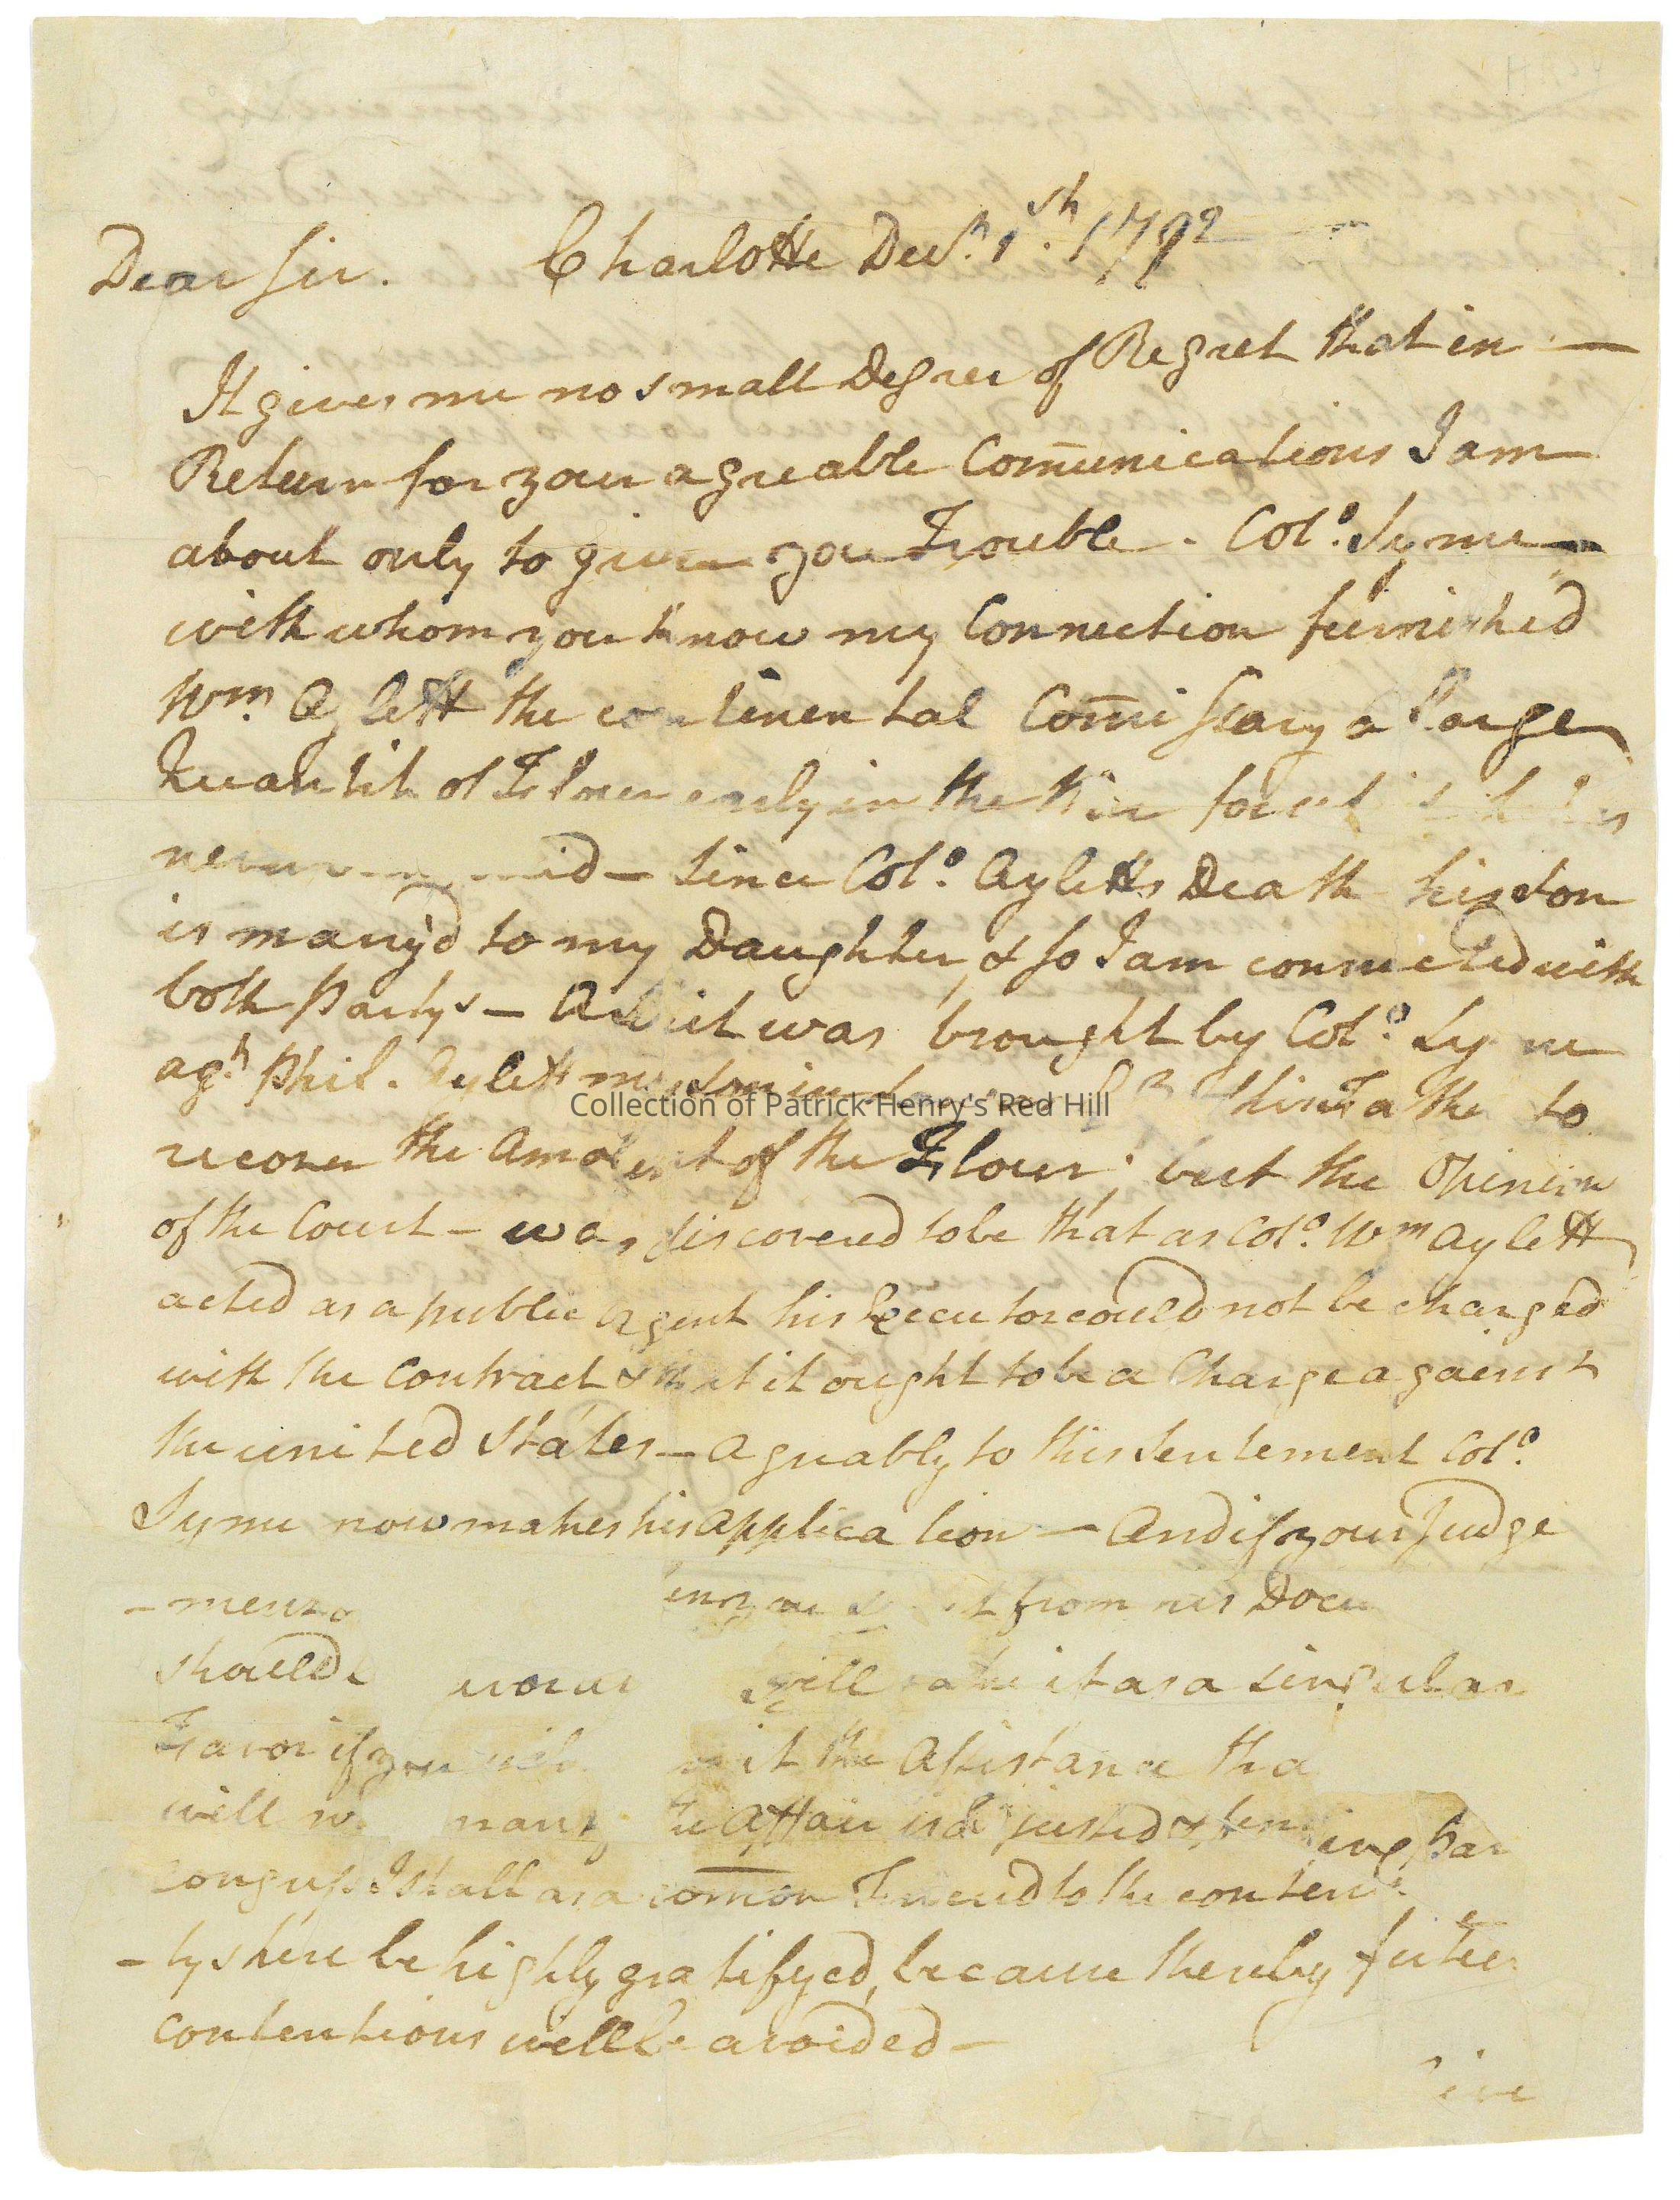 Dear Sir. Charlotte Decr. 1st. 1792
It gives me no small Degree of Regret that in —
Return for your agreable Com̄unications I am
about only to give you Trouble - Colo. Syme —
with whom you know my Connection furnished
Wm. Aylett the continental Com̄issary a large
Quantity of Flour early in the War for
never — Since Colo. Ayletts Death his Son
is marry'd to my Daughter, & so I am connected with
both Partys — A Suit was brought by Colo. Syme
agt. Phil. Aylett his Father to
Collection of Patrick Henry's Red Hill
recover the Amount of the Flour; but the Opinion
of the Court — was discovered to be that as Colo. Wm Aylett
acted as a public Agent his Executor could not be charged
with the Contract & that it ought to be a Charge against
the united States — Agreably to this Sentement Colo.
Syme now makes his Application — And if your Judge
-ment from his Docu
should it as a singular
Favor if you it the Assistance tha
will the Affair is adjusted & par
Congress I shall as a com̄on Friend to the contend
-tys here be highly gratifyed, because thereby
contentions will be avoided —